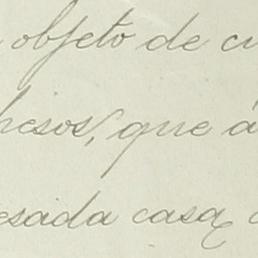 objeto de cu
pesos, que á
esada casa